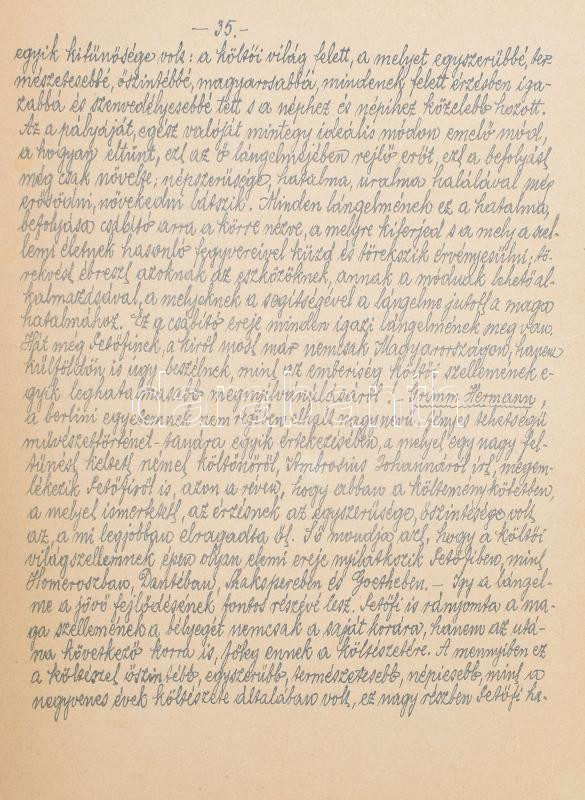 — 35. —
egyik kitünősége volt: a költői világ felett, a melyet egyszerübbé, ter-
mészetesebbé, őszintébbé, magyarosabbá, mindenek felett érzésben iga-
zabbá és szenvedélyesebbé tett s a néphez és népihez közelebb hozott.
Az a pályáját, egész valóját mintegy ideális módon emelő mód,
a hogyan eltünt, ezt az ő lángelméjében rejlő erőt, ezt a befolyást
még csak növelte; népszerüsége hatalma, uralma halálával még
erősödni, növekedni látszik. Minden lángelmének ez a hatalma,
befolyása csábító arra a körre nézve, a melyre kiterjed s a mely a szel-
lemi életnek hasonló fegyvereivel küzd és törekszik érvényesülni; tö-
rekvést ébreszt azoknak az eszközöknek, annak a módnak lehető al-
kalmazásával, a melyeknek a segítségével a lángelme jutott a maga
hatalmához. Ez a csábító ereje minden igazi lángelmének meg van.
Hát még Petőfinek, a kiről most már nemcsak Magyarországon, hanem
külföldön is ugy beszélnek, mint az emberiség költői szellemének e-
gyik leghatalmasabb megnyilvánulásáról. Grimm Hermann,
a berlini egyetemnek nem régiben elhalt nagynevü, fényes tehetségü
müvészettörténet-tanára egyik értekezésében, a melyet egy nagy fel-
tünést keltett német költőnőről, Ambrosius Johannáról írt, megem-
lékezik Petőfiről is, azon a réven, hogy abban a költeménykötetben,
a melyet ismertetett, az érzésnek az egyszerüsége, őszintesége volt
az, a mi legjobban elragadta őt. Ő mondja azt, hogy a költői
világszellemnek épen olyan elemi ereje nyilatkozik Petőfiben, mint
Homeroszban, Dantéban, Shaksperében és Goetheben. — Igy a lángel-
me a jövő fejlődésének fontos részévé lesz. Petőfi is rányomta a ma-
ga szellemének a bélyegét nemcsak a saját korára, hanem az utá-
na következő korra is, főleg ennek a költészetére. A mennyiben ez
a költészet őszintébb, egyszerübb, természetesebb, népiesebb, mint a
negyvenes évek költészete általában volt, ez nagy részben Petőfi ha-
darabanth